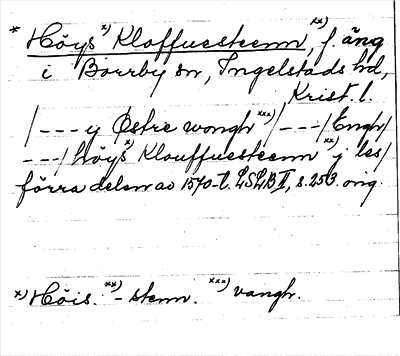 * Höys x) Kloffuesteenn xx), f. äng
i Borrby sn, Ingelstads hd,
Krist. l.
/--- y Østre wongh xxx) /---/ Engh/
---/ höys x) Klouffuesteenn xx) j les/
förra delen av 1570-t. LSLB II, s. 253. orig.
x) Höis. xx) -stenn. xxx) vangh.